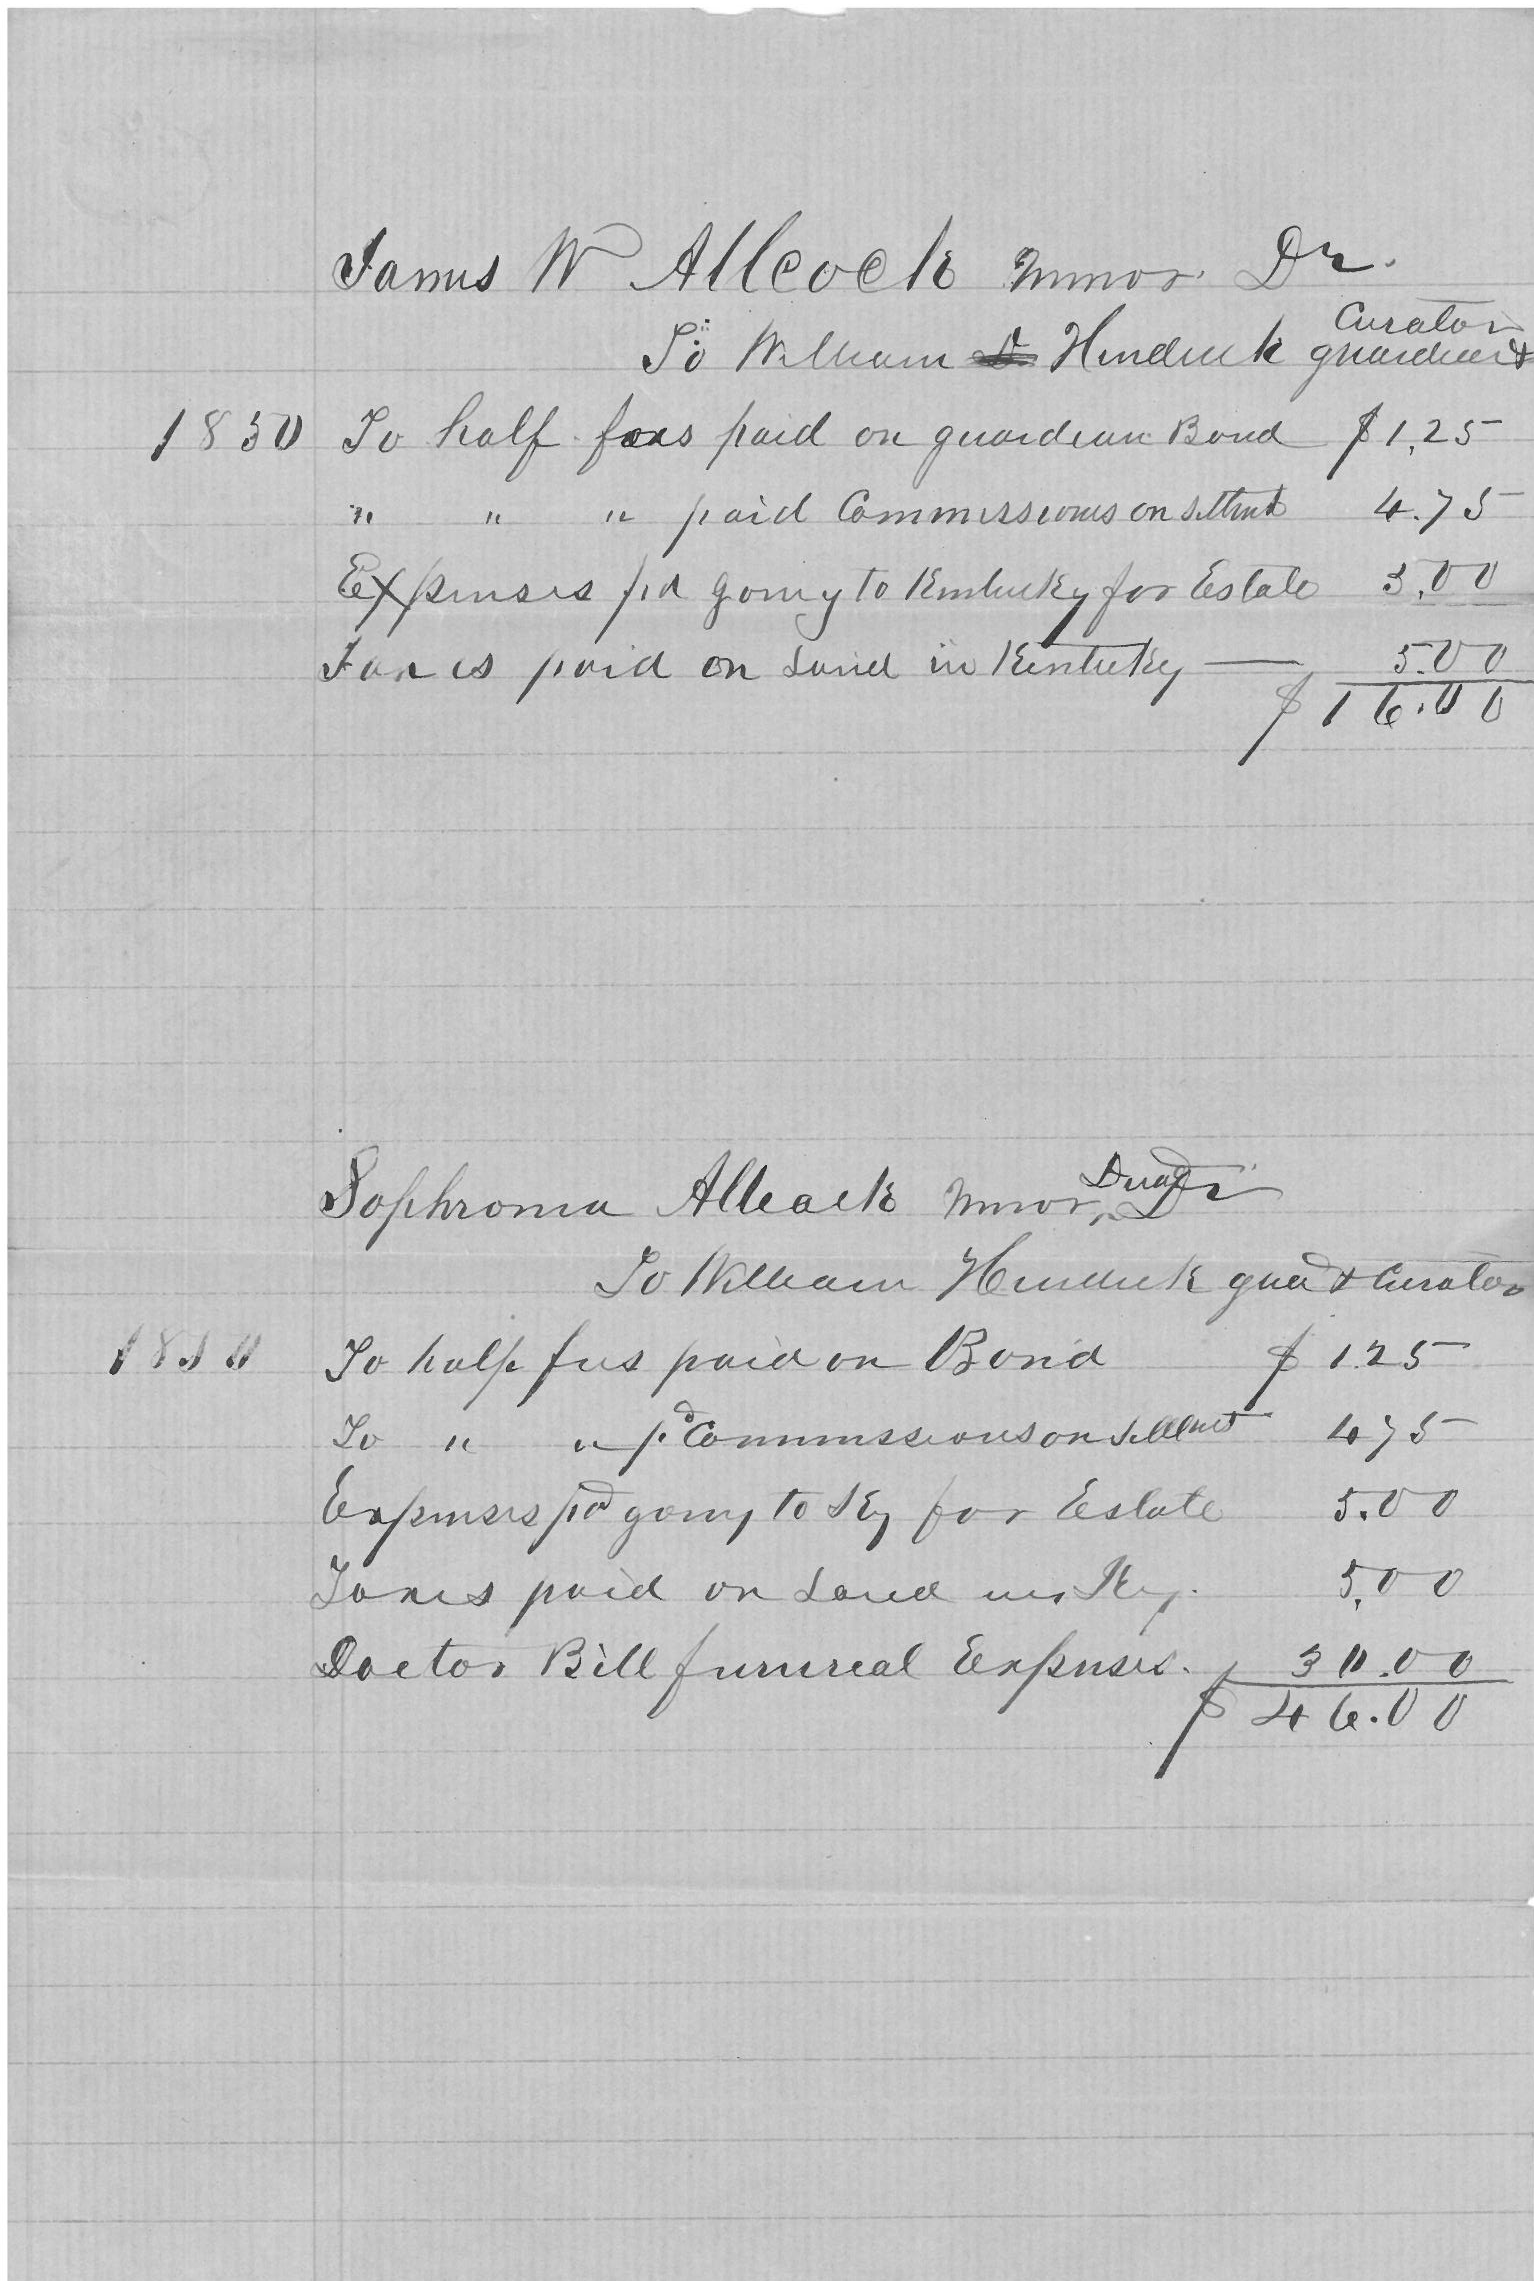 James W Allcock minor Dr.
Curator
To William Hendrick guardian &
1850 To half fees paid on guardian Bond $1.25
" " " paid Commissions on Settmt 4.75
Expenses pd going to Kentucky for Estate 5.00
Taxes paid on Land in Kentucky — 5.00
$16.00
Dead
Sophronia Allcock minor, Dr
To William Hendrick guad & Curator
1850 To half fees paid on Bond $1.25
To " " pd Commissions on Settlmt 4 75
Expenses pd going to Ky for Estate 5.00
Taxes paid on Land in Ky. 5.00
Doctor Bill funereal Expenses. 30.00
$46.00